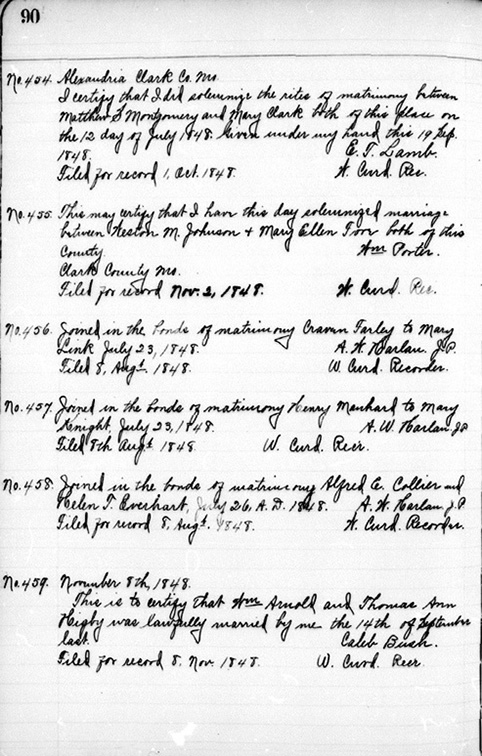 90
No. 454. Alexandria Clark Co. Mo.
I certify that I did solemnize the rites of matrimony between
Matthew S Montgomery and Mary Clark both of this place on
the 12 day of July 1848. Given under my hand this 19 Sep.
1848. E. T. Lamb.
Filed for record 1, Oct. 1848. W. Curd. Rec.
No. 455. This may certify that I have this day solemnized marriage
between Weston M. Johnson + Mary Ellen both of this
County. Wm Porter.
Clark County Mo.
Filed for record Nov. 2, 1848. W. Curd. Rec.
No. 456. Joined in the bonds of matrimony Cravan Farley to Mary
Link July 23, 1848. A. W. Harlan J.P.
Filed 8, Augt. 1848. W. Curd. Recorder.
No. 457. Joined in the bonds of matrimony Henry Manhard to Mary
Knight, July 23, 1848. A. W. Harlan J.P.
Filed 8th Augt. 1848. W. Curd. Recr.
No. 458. Joined in the bonds of matrimony Alfred C. Collier and
Helen T. Everhart, July 26, A.D. 1848. A. W. Harlan J.P.
Filed for record 8, Augt. 1848. W. Curd. Recorder.
No. 459. November 8th, 1848.
This is to certify that Wm Arnold and Thomas Ann
Higby was lawfully married by me the 14th of September
last. Caleb Bush.
Filed for record 8. Nov. 1848. W. Curd. Recr.